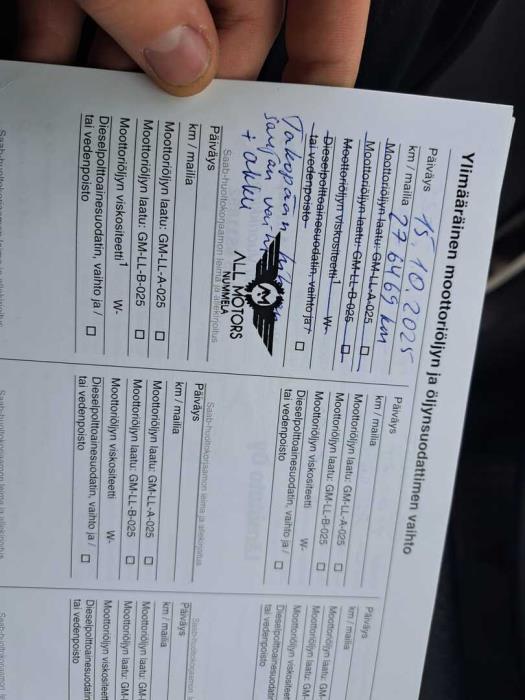 Ylimääräinen moottoriöljyn ja öljynsuodattimen vaihto
Päiväys 15.10.2025
km / mailia 276469 km
Moottoriöljyn laatu: GM-LL-A-025
Moottoriöljyn laatu: GM-LL-B-025
Moottoriöljyn viskositeetti¹ W-
Dieselpolttoainesuodatin, vaihto ja /
tai vedenpoisto
Takapään
sarjan
+ akku
ALL MOTORS
NUMMELA
Saab-huoltokorjaamon leima ja allekirjoitus
Päiväys
km / mailia
Moottoriöljyn laatu: GM-LL-A-025
Moottoriöljyn laatu: GM-LL-B-025
Moottoriöljyn viskositeetti¹ W-
Dieselpolttoainesuodatin, vaihto ja /
tai vedenpoisto
Saab-huoltokorjaamon leima ja allekirjoitus
Päiväys
km / mailia
Moottoriöljyn laatu: GM-LL-A-025
Moottoriöljyn laatu: GM-LL-B-025
Moottoriöljyn viskositeetti W-
Dieselpolttoainesuodatin, vaihto ja /
tai vedenpoisto
Saab-huoltokorjaamon leima ja allekirjoitus
Päiväys
km / mailia
Moottoriöljyn laatu: GM-LL-A-025
Moottoriöljyn laatu: GM-LL-B-025
Moottoriöljyn viskositeetti W-
Dieselpolttoainesuodatin, vaihto ja /
tai vedenpoisto
Päiväys
km / mailia
Moottoriöljyn laatu: GM-LL
Moottoriöljyn laatu: GM-LL
Moottoriöljyn viskositeetti
Dieselpolttoainesuodatin
tai vedenpoisto
Saab-huoltokorjaamon leima
Päiväys
km / mailia
Moottoriöljyn laatu: GM-L
Moottoriöljyn laatu: GM-L
Moottoriöljyn viskositeetti
Dieselpolttoainesuodatin
tai vedenpoisto